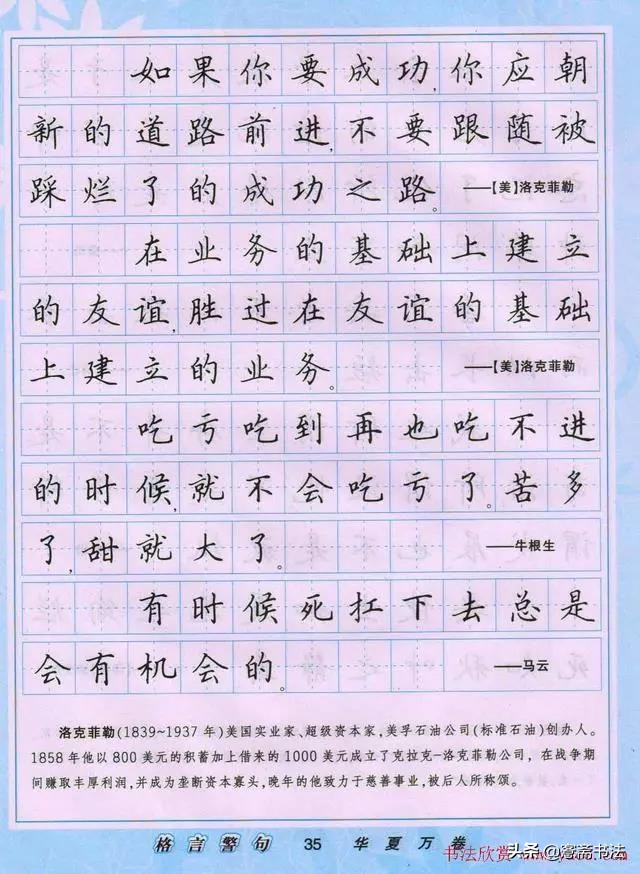 如果你要成功,你应朝
新的道路前进,不要跟随被
踩烂了的成功之路。 ——【美】洛克菲勒
在业务的基础上建立
的友谊,胜过在友谊的基础
上建立的业务。 ——【美】洛克菲勒
吃亏吃到再也吃不进
的时候,就不会吃亏了。苦多
了,甜就大了。 ——牛根生
有时候死扛下去总是
会有机会的。 ——马云
洛克菲勒(1839~1937年)美国实业家、超级资本家,美孚石油公司(标准石油)创办人。
1858年他以800美元的积蓄加上借来的1000美元成立了克拉克-洛克菲勒公司,在战争期
间赚取丰厚利润,并成为垄断资本寡头,晚年的他致力于慈善事业,被后人所称颂。
格言警句 35 华夏万卷
书法欣赏
头条@鴍斋书法